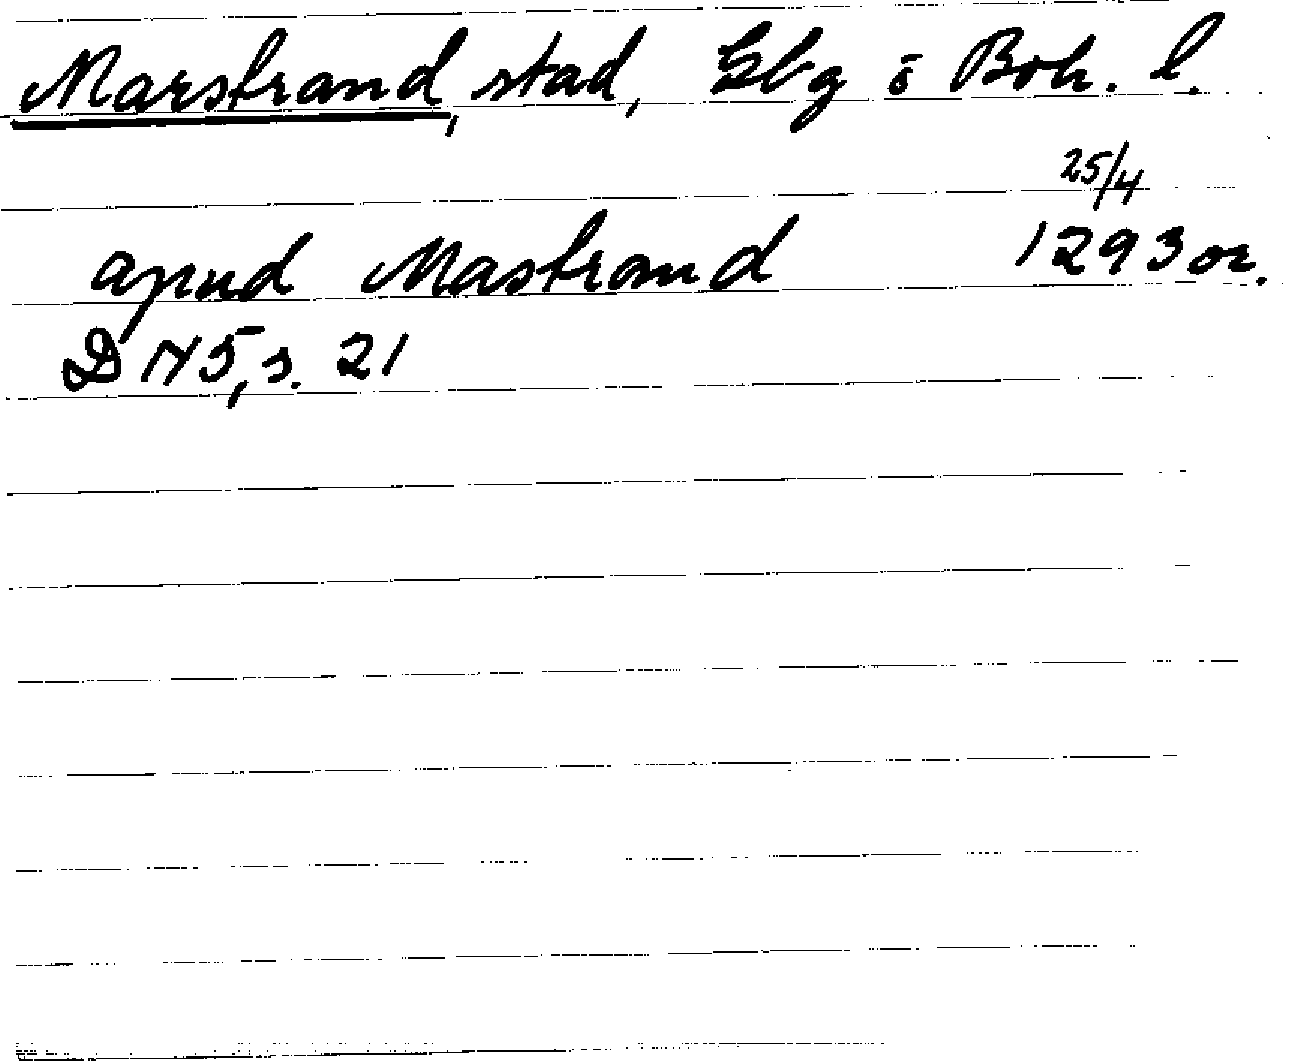 Marstrand, stad, Gbg o Boh. l.
25/4
apud Mastrand 1293 or.
DN 5, s. 21